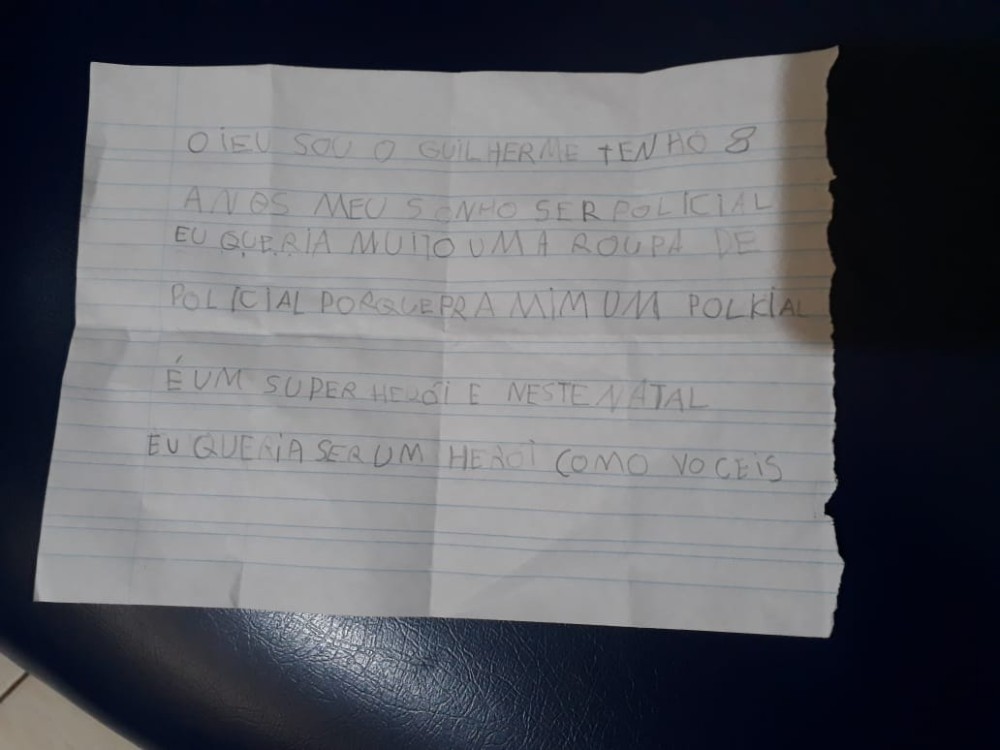 OiEU SOU O GUILHERME tENHO 8
ANOS MEU SONHO SER POLICIAL
EU QUERIA MUITO UMA ROUPA DE
POLICIAL PORQUE PRA MiM UM POLICiAL
É UM SUPER HERÓi E NESTE NATAL
EU QUERiA SER UM HEROi COMO VOCEIS